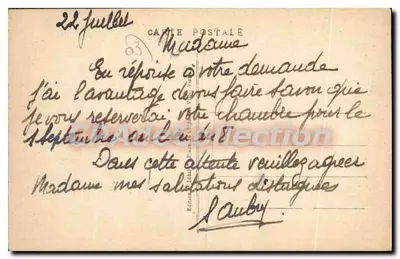 22 Juillet
CARTE POSTALE
03
Madame
En réponse a votre demande
j'ai l'avantage de vous faire savoir que
je vous reserverai votre chambre pour le
1 septembre au
Dans cette attente veuillez agreer
Madame mes salutations distingués